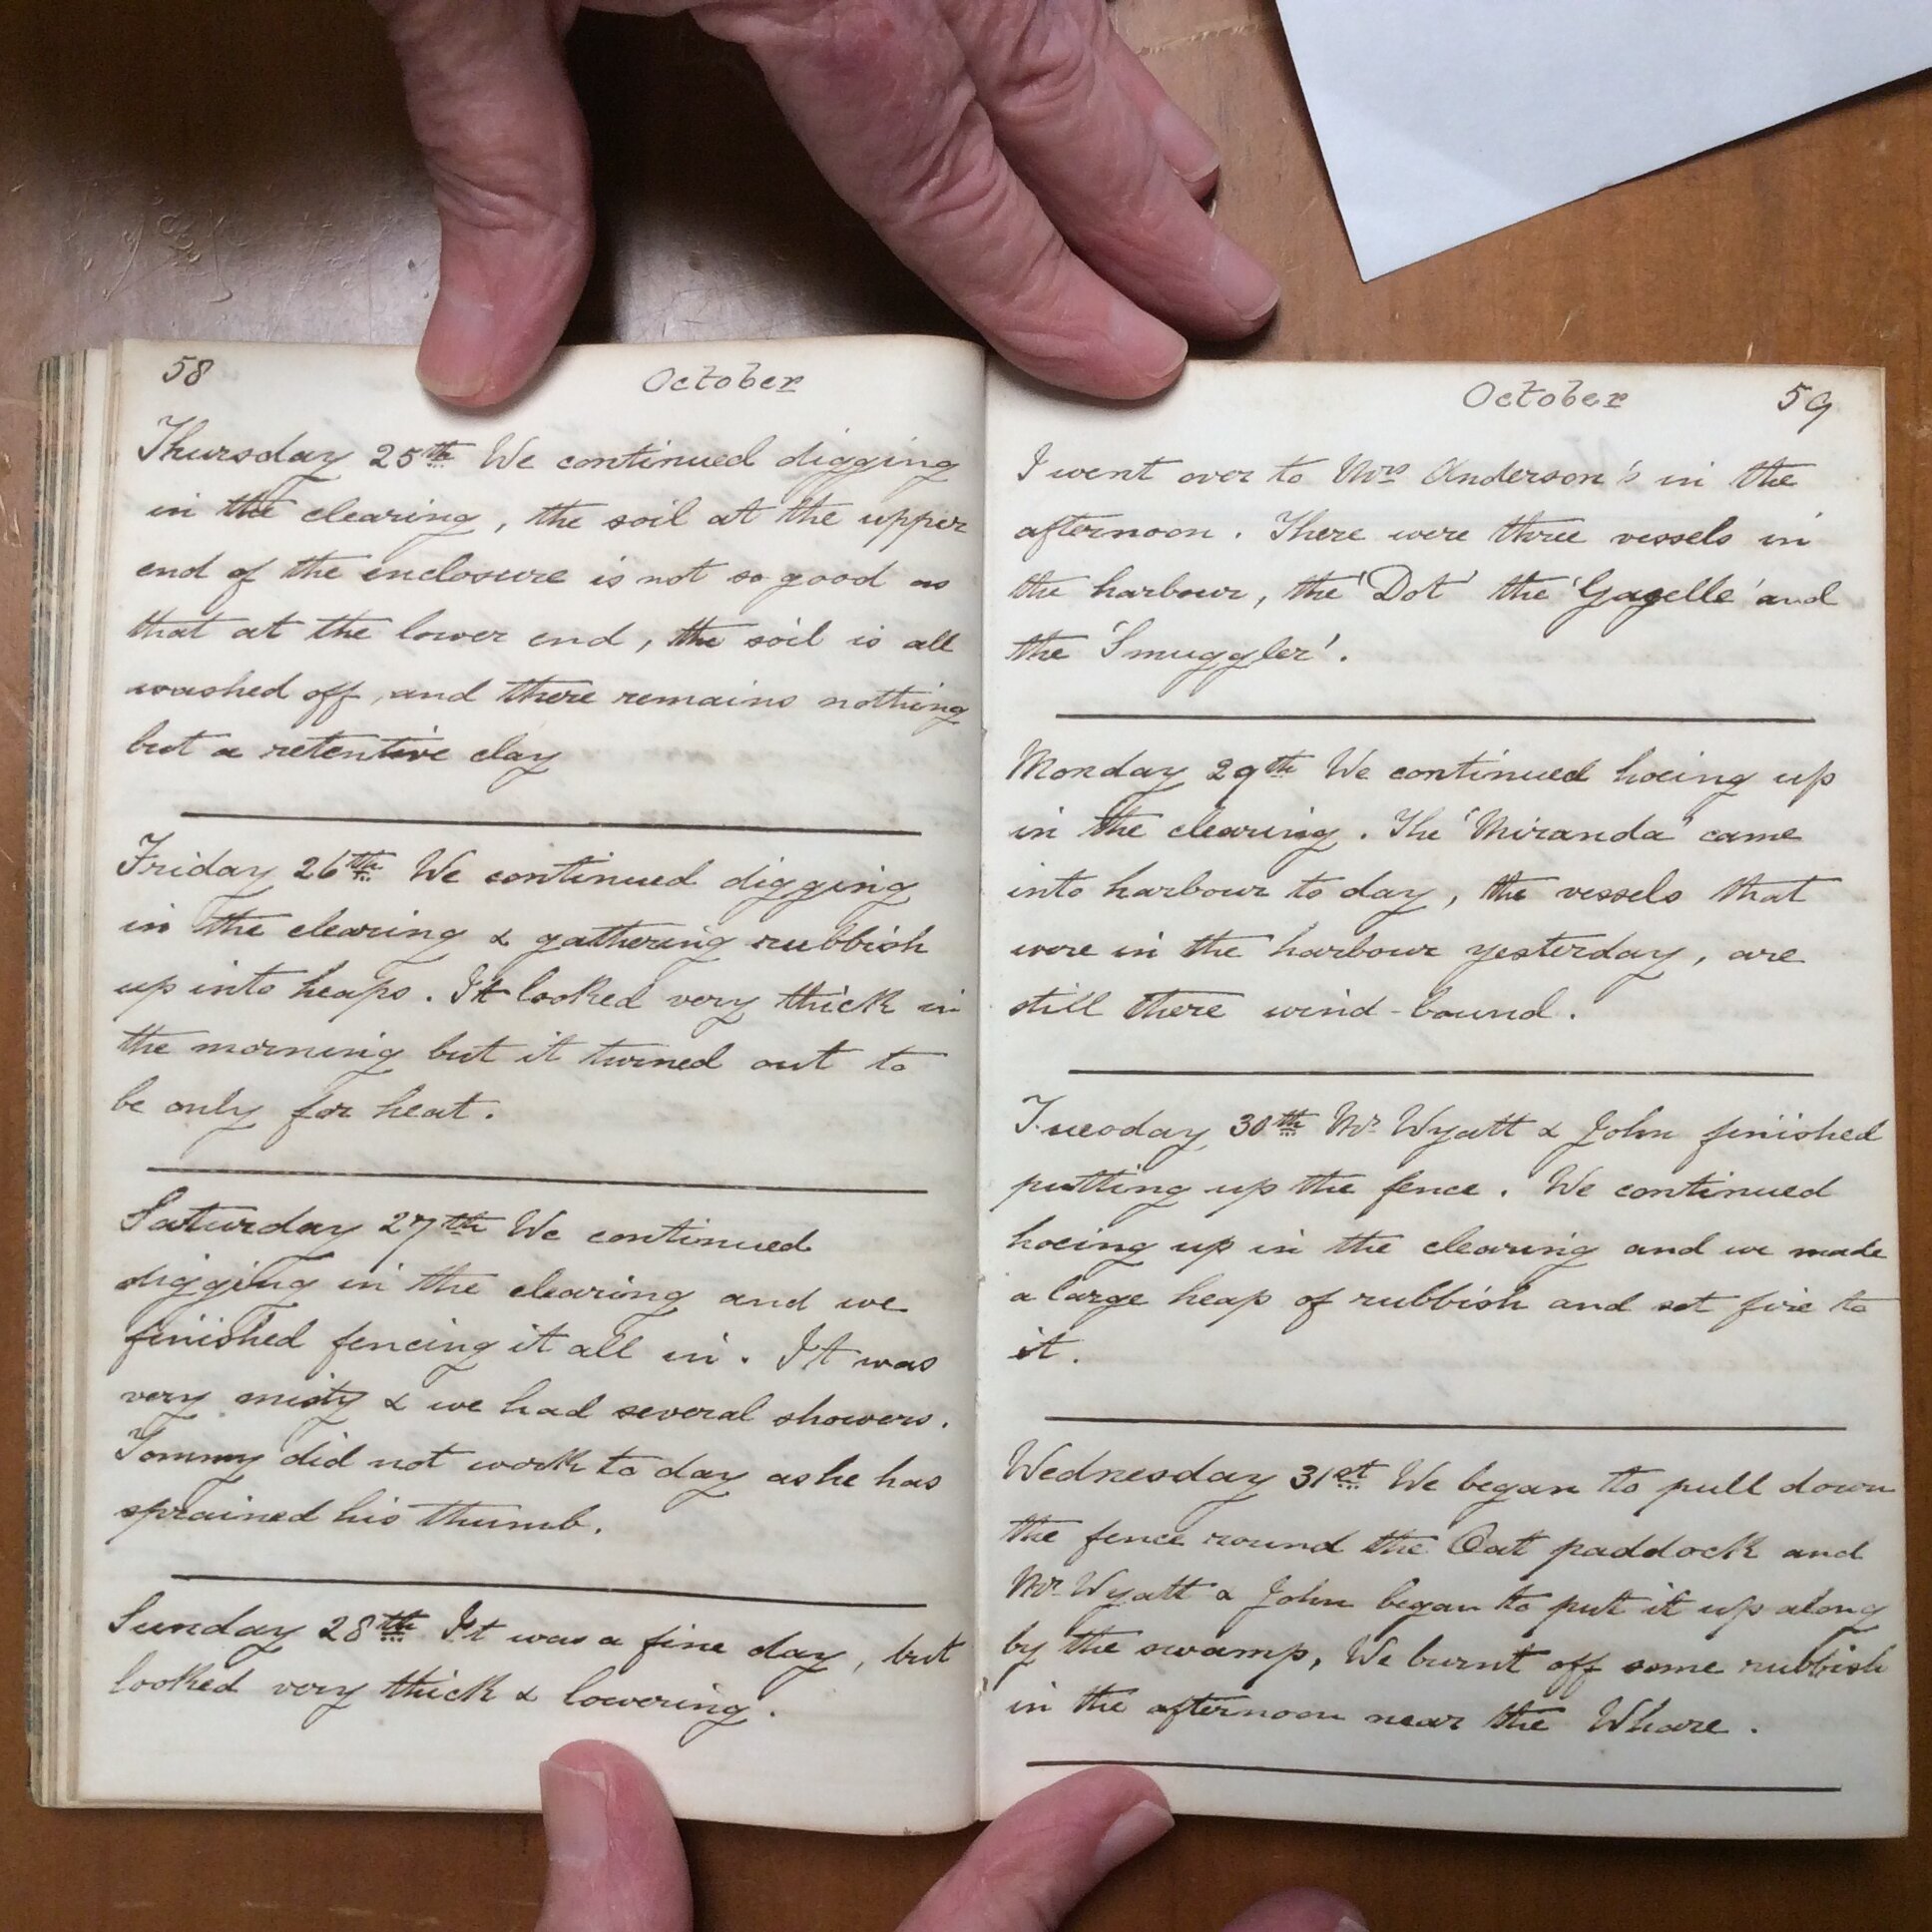 58
October
Thursday 25th We continued digging
in the clearing, the soil at the upper
end of the enclosure is not so good as
that at the lower end, the soil is all
washed off, and there remains nothing
but a retentive clay
Friday 26th We continued digging
in the clearing & gathering rubbish
up into heaps. It looked very thick in
the morning but it turned out to
be only for heat.
Saturday 27th We continued
digging in the clearing and we
finished fencing it all in. It was
very misty & we had several showers.
Tommy did not work to day as he has
sprained his thumb.
Sunday 28th It was a fine day, but
looked very thick & lowering.
October 59
I went over to Mrs Anderson's in the
afternoon. There were three vessels in
the harbour, the 'Dot' the 'Gazelle' and
the 'Smuggler'.
Monday 29th We continued hoeing up
in the clearing. The 'Miranda' came
into harbour to day, the vessels that
were in the harbour yesterday, are
still there wind-bound.
Tuesday 30th Mr Wyatt & John finished
putting up the fence. We continued
hoeing up in the clearing and we made
a large heap of rubbish and set fire to
it.
Wednesday 31st We began to pull down
the fence round the Oat paddock and
Mr Wyatt & John began to put it up along
by the swamp, We burnt off some rubbish
in the afternoon near the Whare.